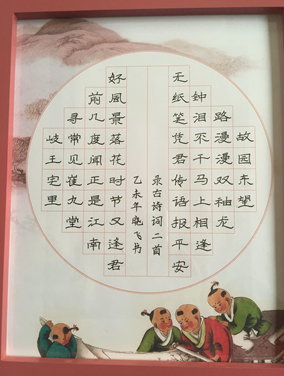 故园东望
路漫漫双袖龙
钟泪不干马上相逢
无纸笔凭君传语报平安
岐王宅里
寻常见崔九堂
前几度闻正是江南
好風景落花时节又逢君
录古诗词二首
乙未年晓飞书